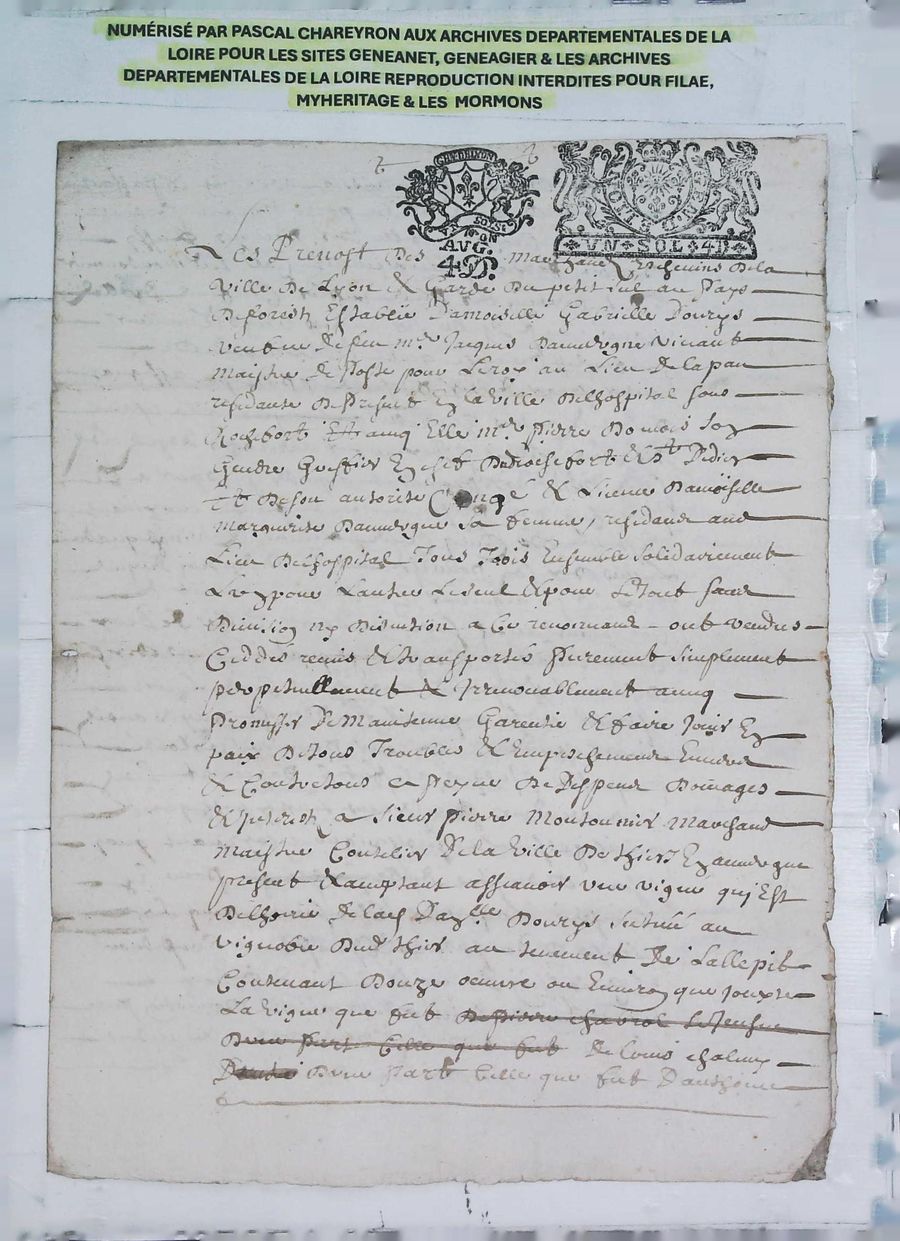 NUMÉRISÉ PAR PASCAL CHAREYRON AUX ARCHIVES DEPARTEMENTALES DE LA
LOIRE POUR LES SITES GENEANET, GENEAGIER & LES ARCHIVES
DEPARTEMENTALES DE LA LOIRE REPRODUCTION INTERDITES POUR FILAE,
MYHERITAGE & LES MORMONS
AVG.
4D.
VN SOL 4D
Les Prevost des Marchans & Eschevins de la
Ville de Lyon & Garde du petit seel au Pays
de forestz Establie Damoiselle Gabrielle Dourys
veufve de feu mre Jacques Dauvergne vivant
maistre de Poste pour Le roy au Lieu de lapau
residante de Present En la ville de Lhospital soub
Rochefort Et avecq Elle mre Pierre Son
Gendre Greffier En chef de Rochefort & St Didier
Et de son autorite Congé & Licence Damoiselle
margueritte Dauvergne sa femme, residans aud
Lieu de Lhospital Tous Trois Ensemble solidairement
L'un pour L'autre Le seul & pour le Tout sans
Division ny discution a Ce renoncans ont vendus
Ceddés remis & transportés Purement simplement
perpetuellement & Irrevocablement avecq
Promesses De Maintenue Garentie & faire Jouir En
paix De tous Troubles & Empeschements Envers
& Contre tous a Peyne De Despens Domages
& Interestz a Sieur Pierre Marchand
maistre Coutelier De la Ville De thiers En auvergne
present & acceptant assavoir une vigne qui Est
de lad Dazlle Dourys scituée au
vignoble Dud thiers au tenement De
Contenant Douze oeuvre ou Environ que Jouxte
La Vigne que fut De Pierre chabrol
Dune Part Celle que fut De Louis
Dune Part Celle que fut Danthoine